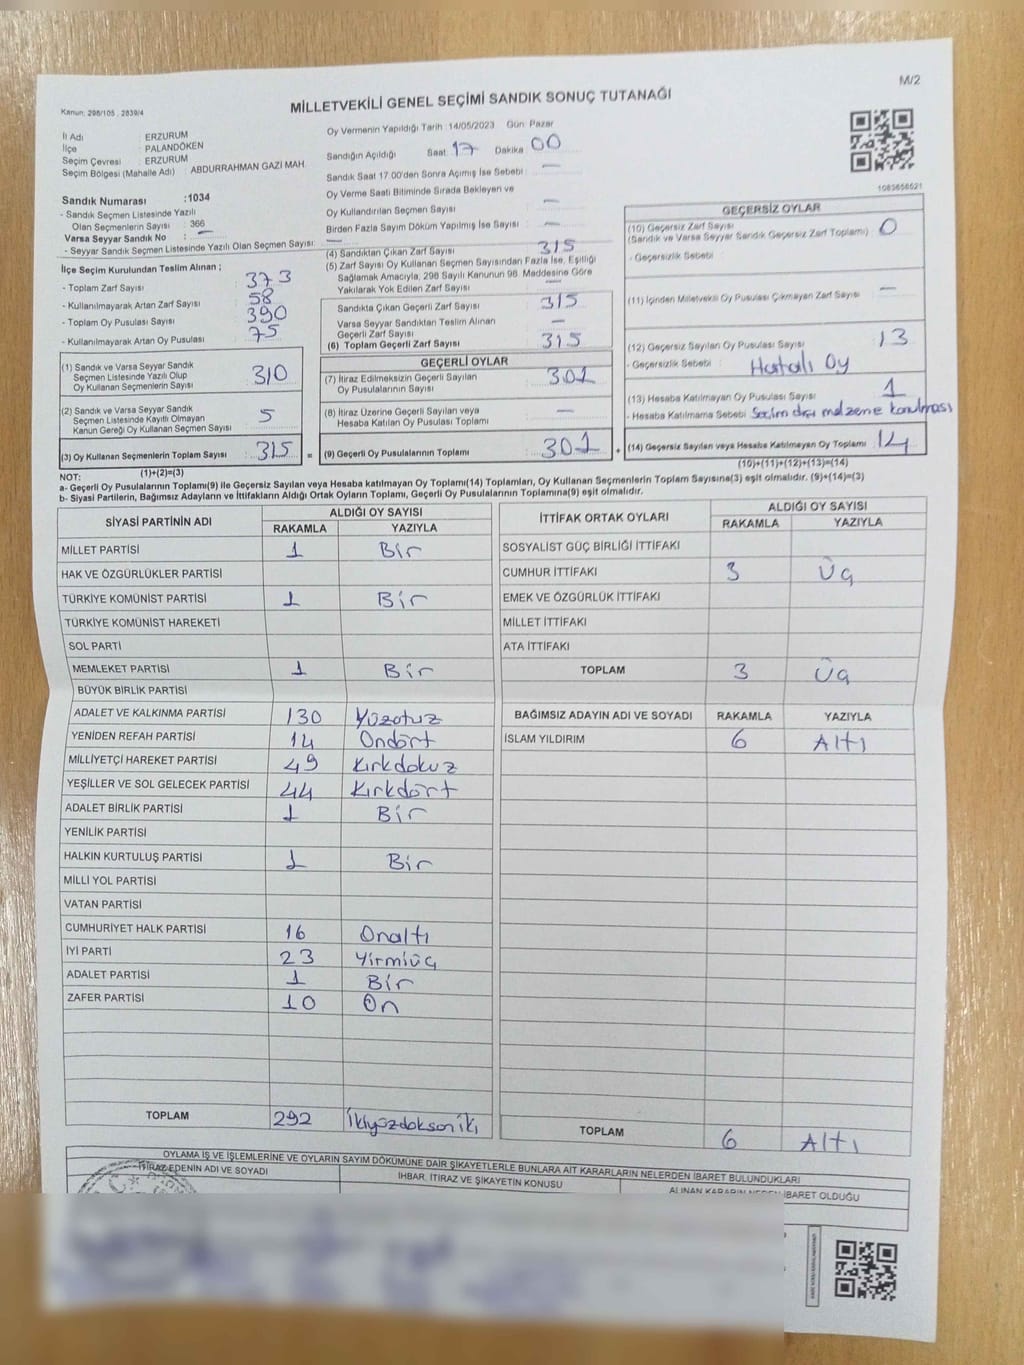 M/2
Kanun: 298/105 , 2839/4
MİLLETVEKİLİ GENEL SEÇİMİ SANDIK SONUÇ TUTANAĞI
İl Adı : ERZURUM
İlçe : PALANDÖKEN
Seçim Çevresi : ERZURUM
Seçim Bölgesi (Mahalle Adı) ABDURRAHMAN GAZİ MAH.
Sandık Numarası :1034
- Sandık Seçmen Listesinde Yazılı
Olan Seçmenlerin Sayısı : 366
Varsa Seyyar Sandık No : –
- Seyyar Sandık Seçmen Listesinde Yazılı Olan Seçmen Sayısı: –
İlçe Seçim Kurulundan Teslim Alınan ;
- Toplam Zarf Sayısı : 373
- Kullanılmayarak Artan Zarf Sayısı : 58
- Toplam Oy Pusulası Sayısı : 390
- Kullanılmayarak Artan Oy Pusulası : 75
(1) Sandık ve Varsa Seyyar Sandık
Seçmen Listesinde Yazılı Olup
Oy Kullanan Seçmenlerin Sayısı 310
(2) Sandık ve Varsa Seyyar Sandık
Seçmen Listesinde Kayıtlı Olmayan
Kanun Gereği Oy Kullanan Seçmen Sayısı 5
(3) Oy Kullanan Seçmenlerin Toplam Sayısı 315 =
(1)+(2)=(3)
Oy Vermenin Yapıldığı Tarih :14/05/2023 Gün: Pazar
Sandığın Açıldığı Saat 17 Dakika 00
Sandık Saat 17.00'den Sonra Açımış İse Sebebi : –
Oy Verme Saati Bitiminde Sırada Bekleyen ve
Oy Kullandırılan Seçmen Sayısı –
Birden Fazla Sayım Döküm Yapılmış İse Sayısı –
(4) Sandıktan Çıkan Zarf Sayısı 315
(5) Zarf Sayısı Oy Kullanan Seçmen Sayısından Fazla İse, Eşitliği
Sağlamak Amacıyla, 298 Sayılı Kanunun 98. Maddesine Göre
Yakılarak Yok Edilen Zarf Sayısı –
Sandıkta Çıkan Geçerli Zarf Sayısı 315
Varsa Seyyar Sandıktan Teslim Alınan
Geçerli Zarf Sayısı –
(6) Toplam Geçerli Zarf Sayısı 315
GEÇERLİ OYLAR
(7) İtiraz Edilmeksizin Geçerli Sayılan
Oy Pusulalarının Sayısı 301
(8) İtiraz Üzerine Geçerli Sayılan veya
Hesaba Katılan Oy Pusulası Toplamı –
(9) Geçerli Oy Pusulalarının Toplamı 301 +
1083656521
GEÇERSİZ OYLAR
(10) Geçersiz Zarf Sayısı 0
(Sandık ve Varsa Seyyar Sandık Geçersiz Zarf Toplamı)
- Geçersizlik Sebebi :
(11) İçinden Milletvekili Oy Pusulası Çıkmayan Zarf Sayısı –
(12) Geçersiz Sayılan Oy Pusulası Sayısı 13
- Geçersizlik Sebebi : Hatalı Oy
(13) Hesaba Katılmayan Oy Pusulası Sayısı 1
- Hesaba Katılmama Sebebi Seçim dışı malzeme konulması
(14) Geçersiz Sayılan veya Hesaba Katılmayan Oy Toplamı 14
(10)+(11)+(12)+(13)=(14)
NOT:
a- Geçerli Oy Pusulalarının Toplamı(9) ile Geçersiz Sayılan veya Hesaba katılmayan Oy Toplamı(14) Toplamları, Oy Kullanan Seçmenlerin Toplam Sayısına(3) eşit olmalıdır. (9)+(14)=(3)
b- Siyasi Partilerin, Bağımsız Adayların ve İttifakların Aldığı Ortak Oyların Toplamı, Geçerli Oy Pusulalarının Toplamına(9) eşit olmalıdır.
SİYASİ PARTİNİN ADI ALDIĞI OY SAYISI
RAKAMLA YAZIYLA
MİLLET PARTİSİ 1 Bir
HAK VE ÖZGÜRLÜKLER PARTİSİ
TÜRKİYE KOMÜNİST PARTİSİ 1 Bir
TÜRKİYE KOMÜNİST HAREKETİ
SOL PARTİ
MEMLEKET PARTİSİ 1 Bir
BÜYÜK BİRLİK PARTİSİ
ADALET VE KALKINMA PARTİSİ 130 Yüzotuz
YENİDEN REFAH PARTİSİ 14 Ondört
MİLLİYETÇİ HAREKET PARTİSİ 49 Kırkdokuz
YEŞİLLER VE SOL GELECEK PARTİSİ 44 Kırkdört
ADALET BİRLİK PARTİSİ 1 Bir
YENİLİK PARTİSİ
HALKIN KURTULUŞ PARTİSİ 1 Bir
MİLLİ YOL PARTİSİ
VATAN PARTİSİ
CUMHURİYET HALK PARTİSİ 16 Onaltı
İYİ PARTİ 23 Yirmiüç
ADALET PARTİSİ 1 Bir
ZAFER PARTİSİ 10 On
TOPLAM 292 İkiyüzdoksaniki
İTTİFAK ORTAK OYLARI ALDIĞI OY SAYISI
RAKAMLA YAZIYLA
SOSYALİST GÜÇ BİRLİĞİ İTTİFAKI
CUMHUR İTTİFAKI 3 Üç
EMEK VE ÖZGÜRLÜK İTTİFAKI
MİLLET İTTİFAKI
ATA İTTİFAKI
TOPLAM 3 Üç
BAĞIMSIZ ADAYIN ADI VE SOYADI RAKAMLA YAZIYLA
İSLAM YILDIRIM 6 Altı
TOPLAM 6 Altı
OYLAMA İŞ VE İŞLEMLERİNE VE OYLARIN SAYIM DÖKÜMÜNE DAİR ŞİKAYETLERLE BUNLARA AİT KARARLARIN NELERDEN İBARET BULUNDUKLARI
İTİRAZ EDENİN ADI VE SOYADI İHBAR, İTİRAZ VE ŞİKAYETİN KONUSU ALINAN KARARIN NEDEN İBARET OLDUĞU